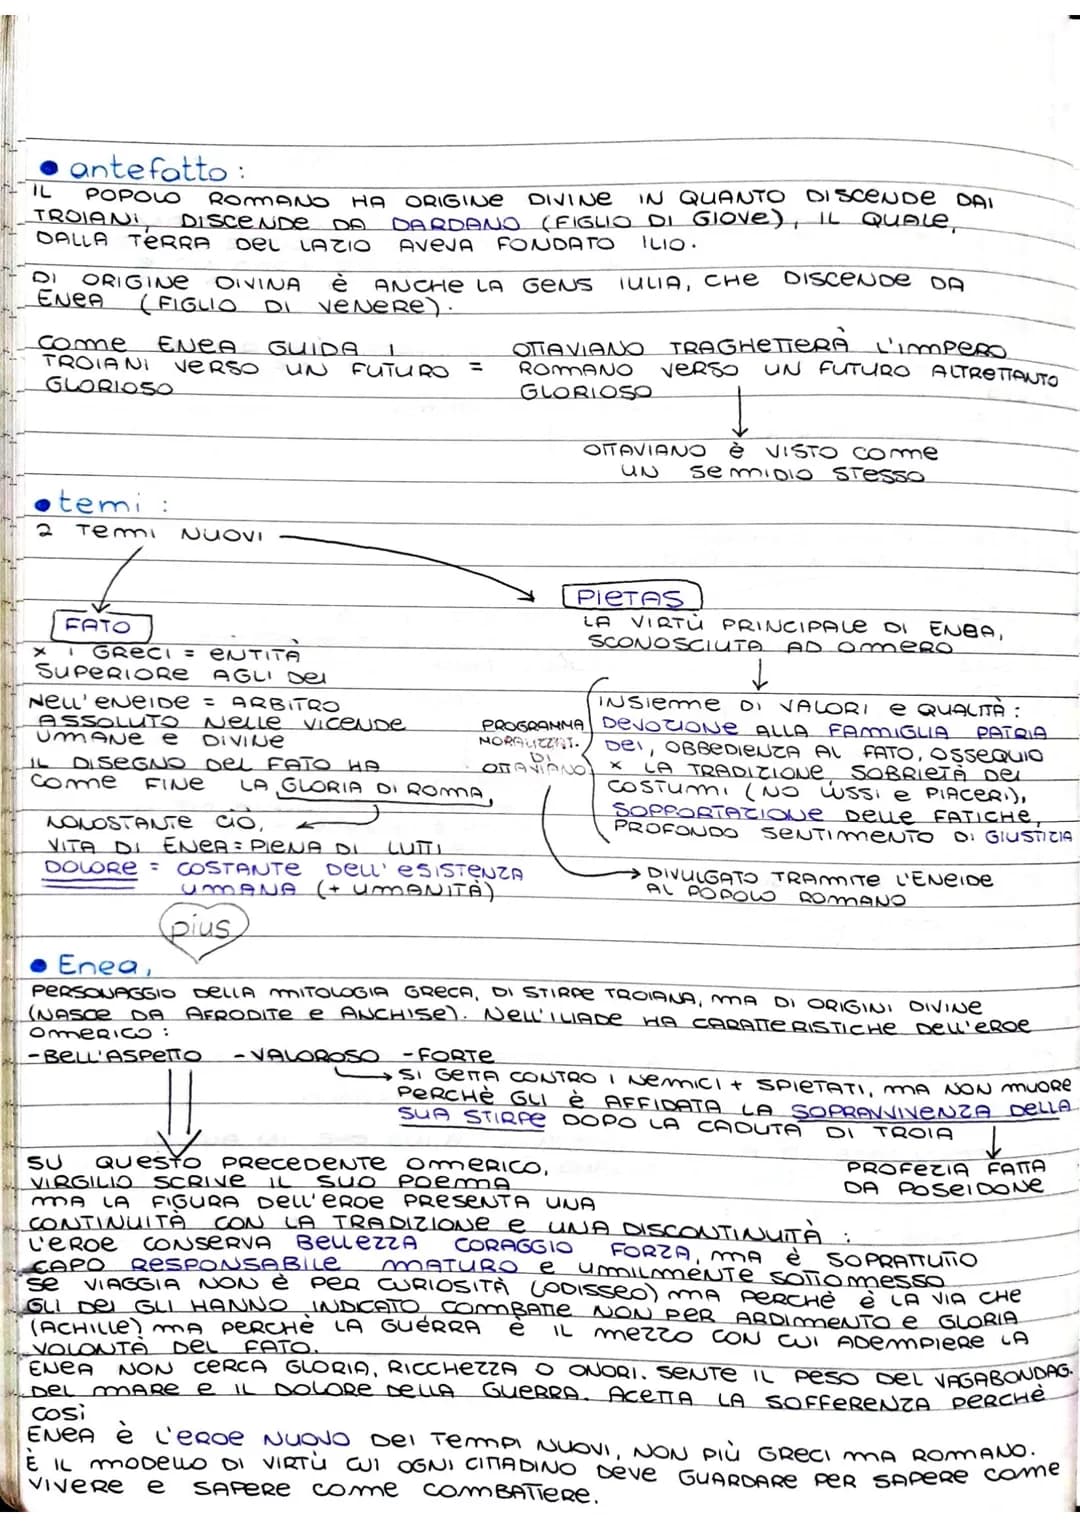 • antefatto:
IL POPOLO ROMANO HA ORIGINE DIVINE IN QUANTO DISCENDE DAI
TROIANI, DISCENDE DA DARDANO (FIGLIO DI GIOVE), IL QUALE,
DALLA TERRA DEL LAZIO AVEVA FONDATO ILIO.
DI ORIGINE DIVINA È ANCHE LA GENS IULIA, CHE DISCENDE DA
ENEA (FIGLIO DI VENERE).
COME ENEA GUIDA I
TROIANI VERSO UN FUTURO =
GLORIOSO
OTTAVIANO TRAGHETTERÀ L'IMPERO
ROMANO VERSO UN FUTURO ALTRETTANTO
GLORIOSO
OTTAVIANO È VISTO COME
UN SEMIDIO STESSO
• temi:
2 TEMI NUOVI
FATO
X I GRECI = ENTITÀ
SUPERIORE AGLI DEI
NELL'ENEIDE = ARBITRO
ASSOLUTO NELLE VICENDE
UMANE E DIVINE
IL DISEGNO DEL FATO HA
COME FINE LA GLORIA DI ROMA,
NONOSTANTE CIÒ,
VITA DI ENEA = PIENA DI LUTTI
DOLORE = COSTANTE DELL'ESISTENZA
UMANA (+ UMANITÀ)
PIETAS
LA VIRTÙ PRINCIPALE DI ENEA,
SCONOSCIUTA AD OMERO
PROGRAMMA
MORALIZZAT.
DI
OTTAVIANO
INSIEME DI VALORI E QUALITÀ:
DEVOZIONE ALLA FAMIGLIA PATRIA
DEI, OBBEDIENZA AL FATO, OSSEQUIO
X LA TRADIZIONE, SOBRIETÀ DEI
COSTUMI (NO LUSSI E PIACERI),
SOPPORTAZIONE DELLE FATICHE,
PROFONDO SENTIMENTO DI GIUSTIZIA
DIVULGATO TRAMITE L'ENEIDE
AL POPOLO ROMANO
pius
• Enea,
PERSONAGGIO DELLA MITOLOGIA GRECA, DI STIRPE TROIANA, MA DI ORIGINI DIVINE
(NASCE DA AFRODITE E ANCHISE). NELL'ILIADE HA CARATTERISTICHE DELL'EROE
OMERICO:
-BELL'ASPETTO -VALOROSO -FORTE
SI GETTA CONTRO I NEMICI + SPIETATI, MA NON MUORE
PERCHÈ GLI È AFFIDATA LA SOPRAVVIVENZA DELLA
SUA STIRPE DOPO LA CADUTA DI TROIA
PROFEZIA FATTA
DA POSEIDONE
SU QUESTO PRECEDENTE OMERICO,
VIRGILIO SCRIVE IL SUO POEMA
MA LA FIGURA DELL'EROE PRESENTA UNA
CONTINUITÀ CON LA TRADIZIONE E UNA DISCONTINUITÀ:
L'EROE CONSERVA BELLEZZA CORAGGIO FORZA, MA È SOPRATTUTTO
CAPO RESPONSABILE MATURO E UMILMENTE SOTTOMESSO
SE VIAGGIA NON È PER CURIOSITÀ (ODISSEO) MA PERCHÈ È LA VIA CHE
GLI DEI GLI HANNO INDICATO COMBATTE NON PER ARDIMENTO E GLORIA
(ACHILLE) MA PERCHÈ LA GUERRA È IL MEZZO CON CUI ADEMPIERE LA
VOLONTÀ DEL FATO.
ENEA NON CERCA GLORIA, RICCHEZZA O ONORI. SENTE IL PESO DEL VAGABONDAG.
DEL MARE E IL DOLORE DELLA GUERRA. ACETTA LA SOFFERENZA PERCHÈ
COSÌ
ENEA È L'EROE NUOVO DEI TEMPI NUOVI, NON PIÙ GRECI MA ROMANO.
È IL MODELLO DI VIRTÙ CUI OGNI CITTADINO DEVE GUARDARE PER SAPERE COME
VIVERE E SAPERE COME COMBATTERE.